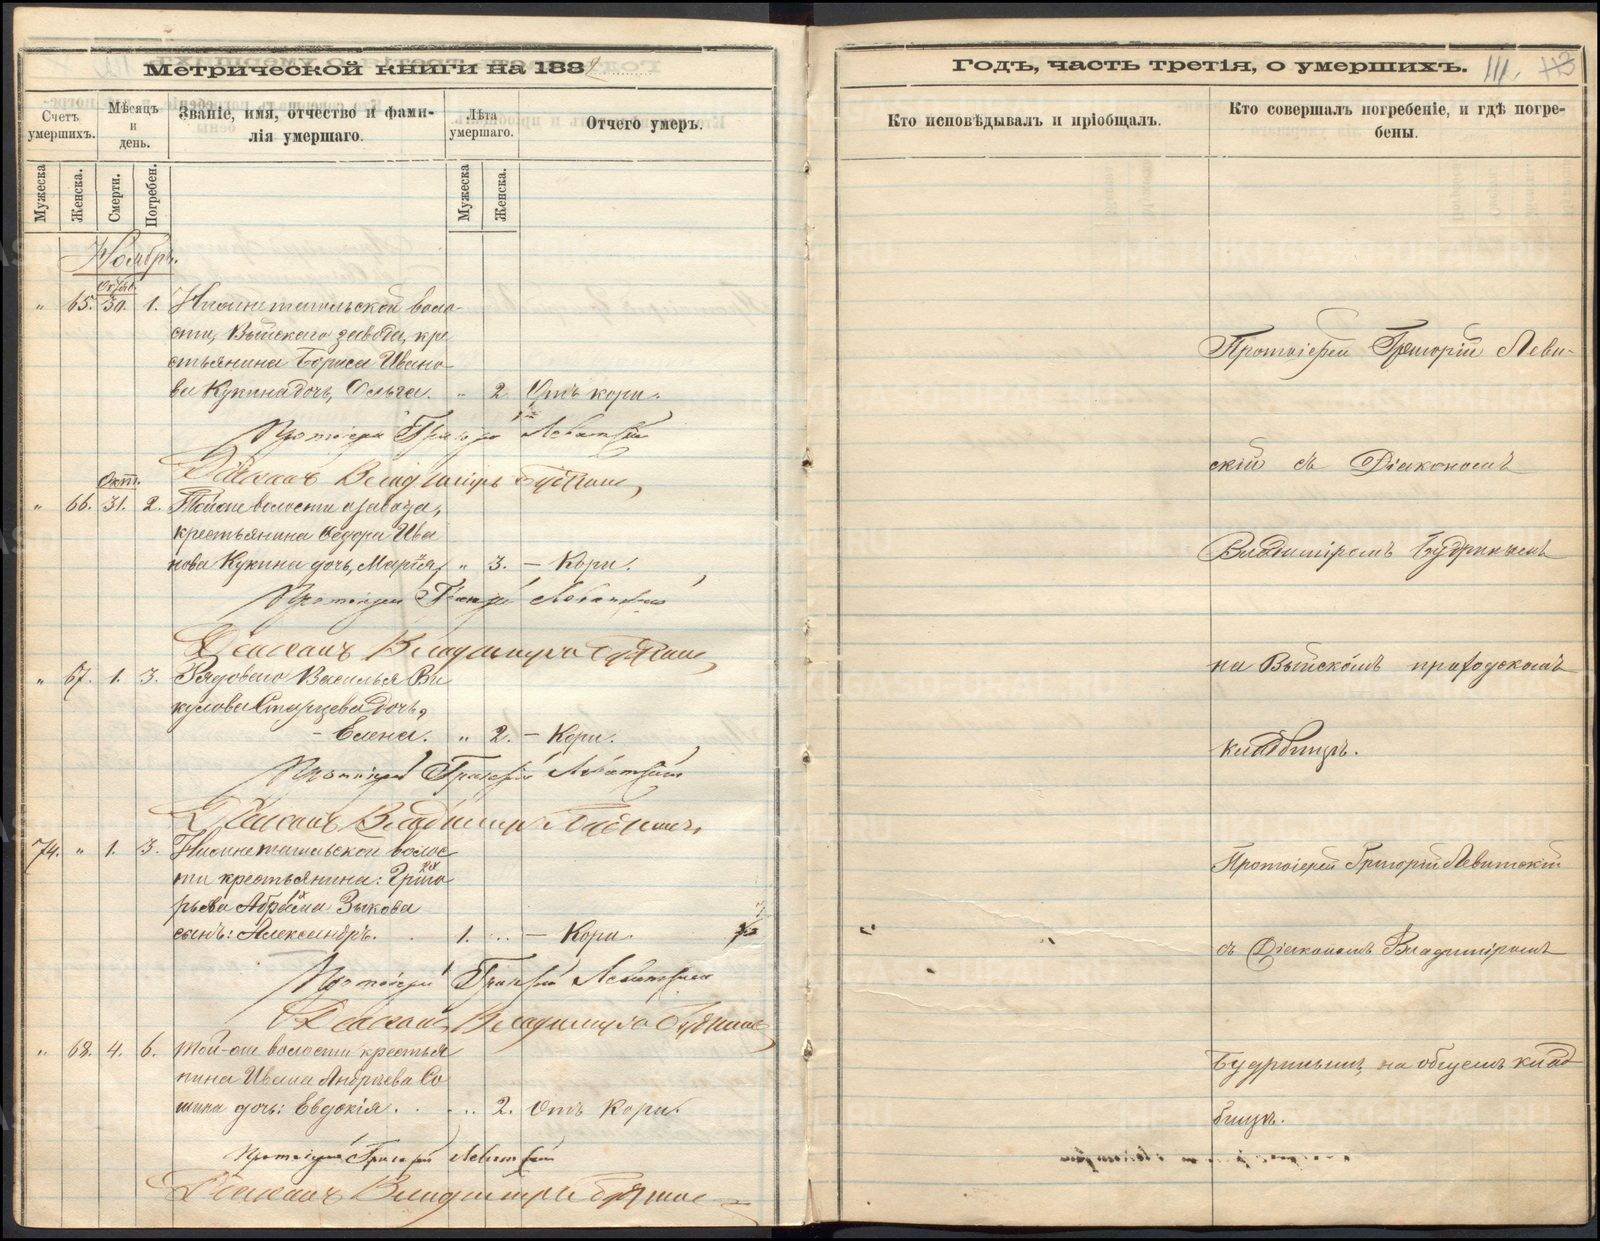 Метрической книги на 188
Счетъ умершихъ.
Мѣсяцъ и день.
Званіе, имя, отчество и фами-
лія умершаго.
Лѣта умершаго.
Отчего умеръ.
Мужеска
Женска.
Смерти.
Погребен.
Мужеска
Женска.
Ноябрь.
Октяб.
" 65. 30. 1. Нижнетагильской воло-
сти, Выйскаго завода, кре
стьянина Бориса Ивано-
ва Кукина дочь, Ольга. " 2. Отъ кори.
Протоіерей Григорій Левитскій
Діаконъ Владиміръ Будринъ
Окт.
" 66. 31. 2. Той же волости и завода,
крестьянина Ѳедора Ива
нова Кукина дочь, Марія, " 3. — Кори.
Протоіерей Григорій Левитскій
Діаконъ Владиміръ Будринъ
" 67. 1. 3. Рядоваго Василья Ви
кулова Старцева дочь,
— Елена. " 2. — Кори.
Протоіерей Григорій Левитскій
Діаконъ Владиміръ Будринъ
74. " 1. 3. Нижнетагильской волос
ти крестьянина: Григо
рьева Зыкова
сынъ: Александръ. 1. " — Кори.
Протоіерей Григорій Левитскій
Діаконъ Владиміръ Будринъ
" 68. 4. 6. Той-же волости крестья
нина Ивана Андреева Со
шина дочь: Евдокія. " 2. Отъ Кори.
Протоіерей Григорій Левитскій
Діаконъ Владиміръ Будринъ
Годъ, часть третія, о умершихъ. 111. 113
Кто исповѣдывалъ и пріобщалъ.
Кто совершалъ погребеніе, и гдѣ погре-
бены.
Протоіерей Григорій Леви-
скій съ Діакономъ
Владиміромъ Будринымъ
на Выйскомъ приходскомъ
кладбищѣ.
Протоіерей Григорій Левитскій
съ Діакономъ Владиміромъ
Будринымъ, на общемъ клад
бищѣ.